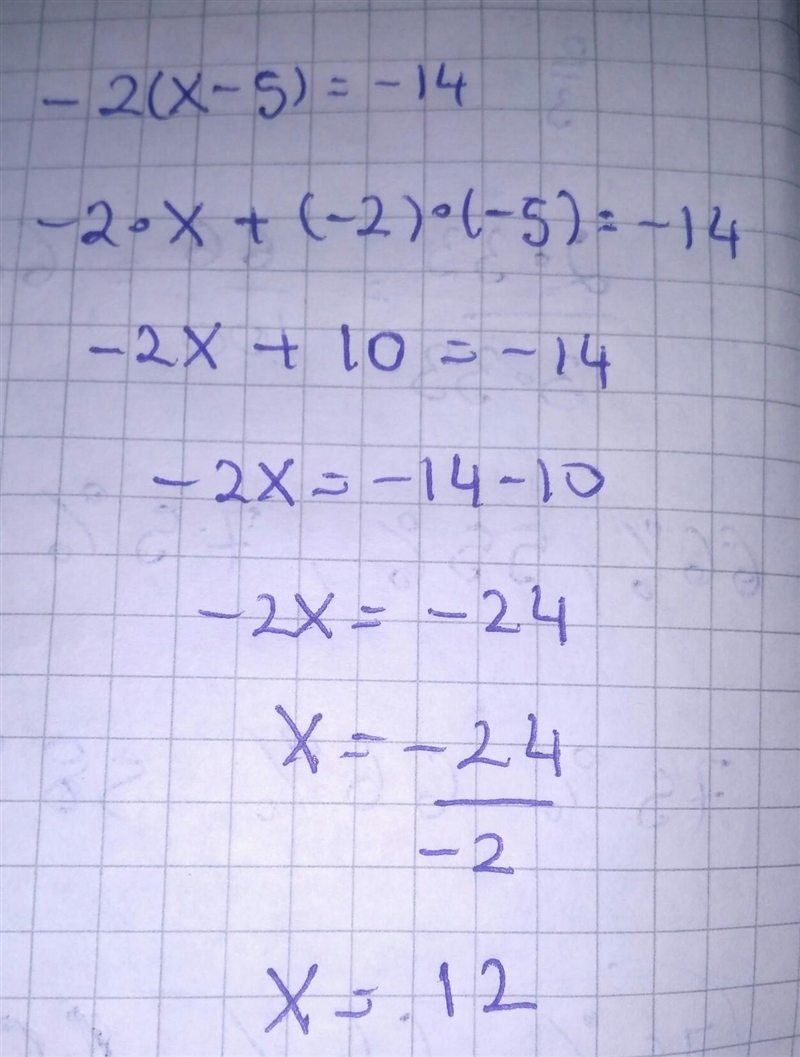 -2(x-5)=-14
-2•x+(-2)•(-5)=-14
-2x+10=-14
-2x=-14-10
-2x=-24
x=-24
-2
x=12